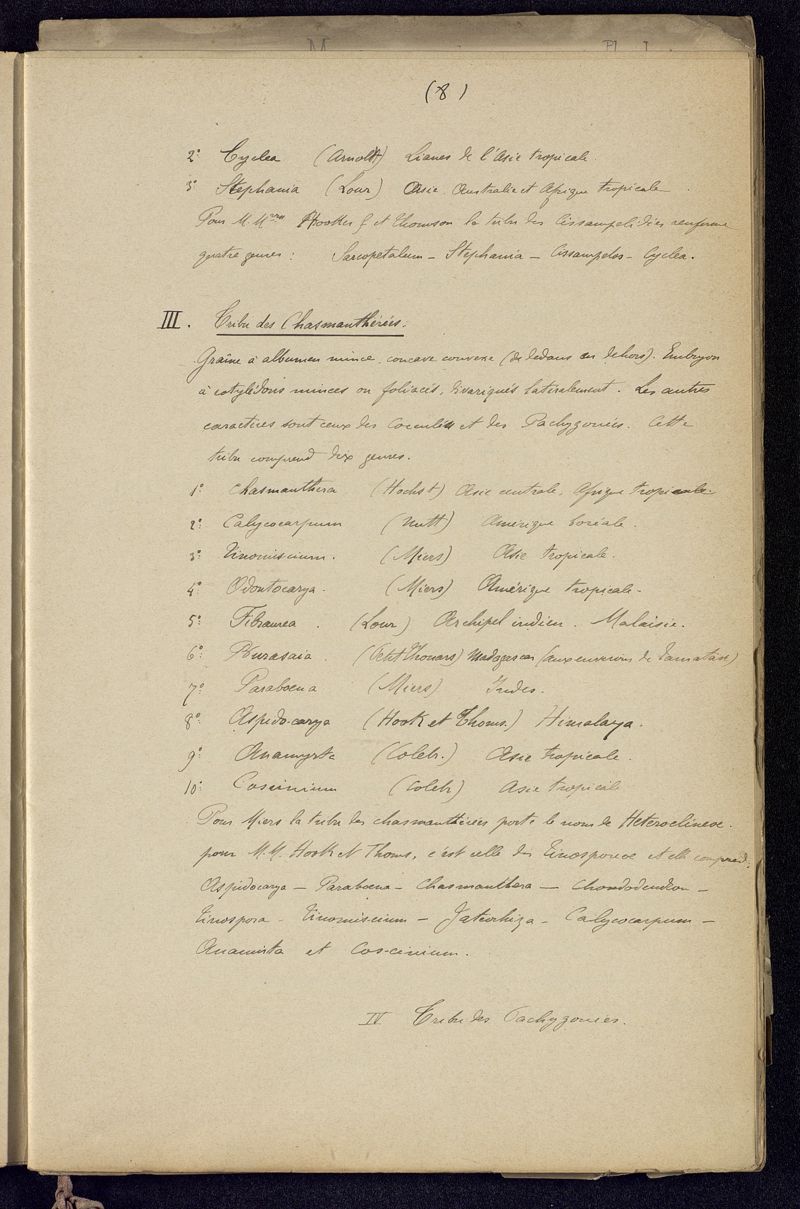 (8)
2º Cyclea (Arnott) Lianes de l'Asie tropicale.
3º Stephania (Lour) Asie, Australie et Afrique tropicale.
Pour M.M.rs Hooker f et Thomson la tribu des Cissampelidées renferme
quatre genres : Sarcopetalum – Stephania – Cissampelos – Cyclea.
III. Tribu des Chasmanthérées.
Graine à albumen mince, concave convexe (de dedans en dehors). Embryon
à cotylédons minces ou foliacés, divariqués latéralement. Les autres
caractères sont ceux des Coculées et des Pachygonées. Cette
tribu comprend dix genres.
1º Chasmanthera (Hochst) Asie centrale, Afrique tropicale.
2º Calycocarpum (Nutt) Amérique boréale.
3º Tinomiscium. (Miers) Asie tropicale.
4º Odontocarya. (Miers) Amérique tropicale.
5º Fibraurea. (Lour) Archipel indien. Malaisie.
6º Burasaia. (Petit Thouars) Madagascar (aux environs de Tamatave)
7º Parabœna (Miers) Indes.
8º Aspidocarya (Hook et Thoms.) Himalaya.
9º Anamyrte (Colebr.) Asie tropicale.
10º Coscinium (Colebr) Asie tropicale
Pour Miers la tribu des chasmanthérées porte le nom de Heteroclineœ.
pour M.M. Hook et Thoms, c'est celle des Tinosporeœ et elle comprend :
Aspidocarya – Parabœna – Chasmanthera – Chondodendron –
Tinospora – Tinomiscium – Jateorhiza – Calycocarpum –
Anamirta et Coscinium.
IV Tribu des Pachygonées.